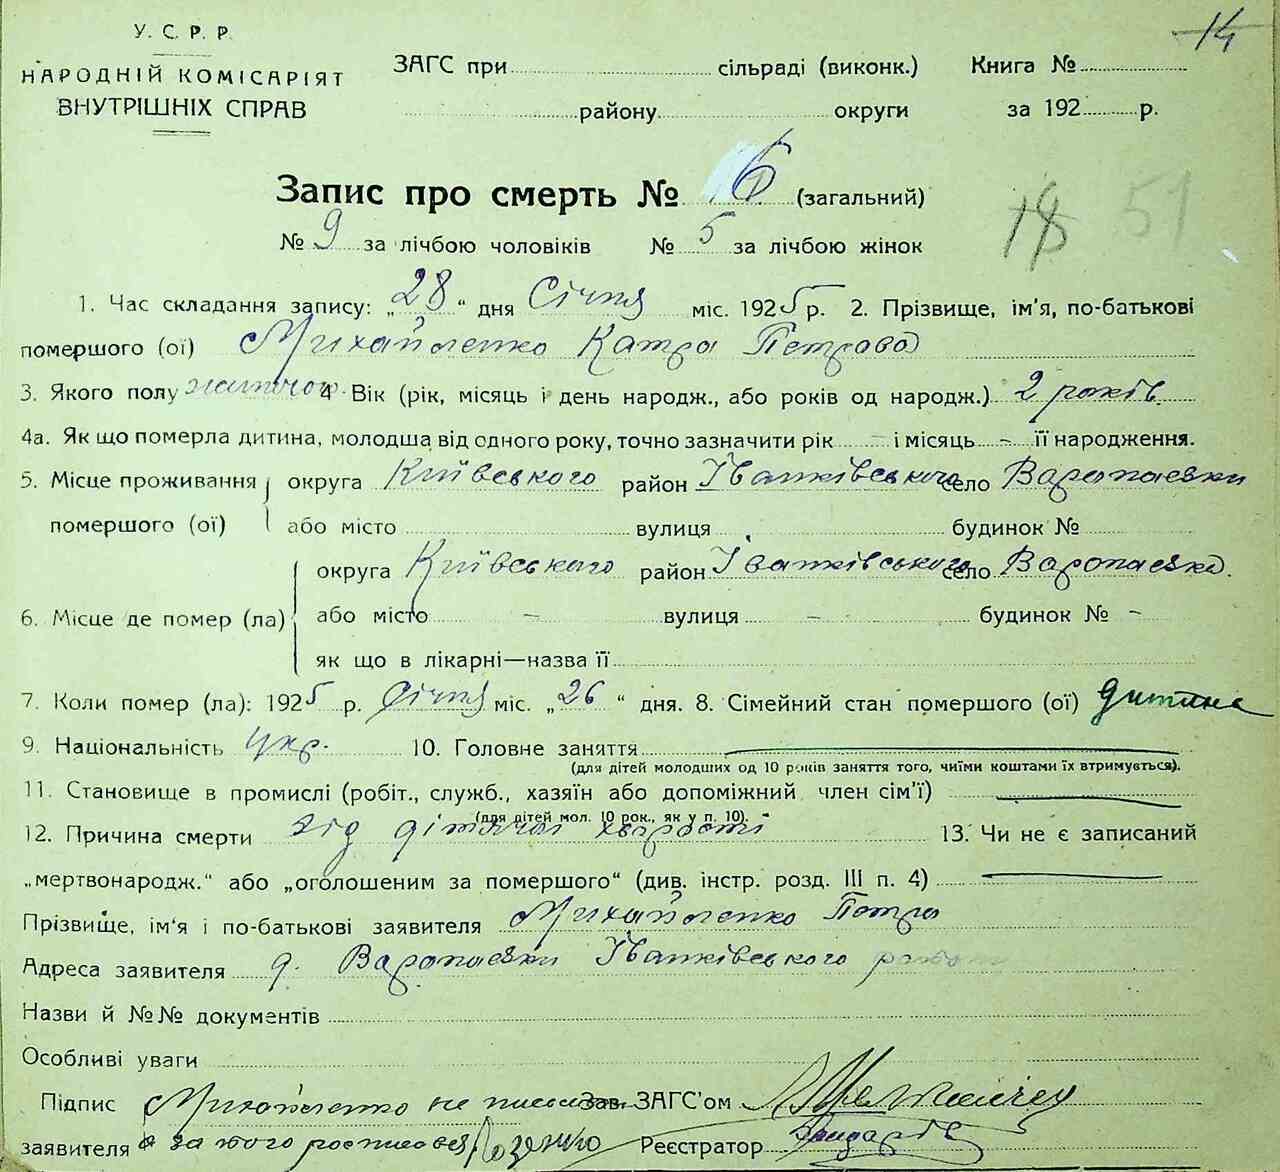 14
У. С. Р. Р.
НАРОДНІЙ КОМІСАРІЯТ
ВНУТРІШНІХ СПРАВ
ЗАГС при сільраді (виконк.) Книга №
району округи за 192 р.
Запис про смерть № 6 (загальний)
18 51
№ 9 за лічбою чоловіків № 5 за лічбою жінок
1. Час складання запису: „28“ дня Січня міс. 1925 р. 2. Прізвище, ім'я, по-батькові
помершого (ої) Михайленко Катра Петрова
3. Якого полу жіночого 4. Вік (рік, місяць і день народж., або років од народж.) 2 років
4а. Як що померла дитина, молодша від одного року, точно зазначити рік – і місяць – її народження.
5. Місце проживання округа Київського район Іванківського село Варопаевки
помершого (ої) або місто вулиця будинок №
округа Київського район Іванківського село Варопаевка.
6. Місце де помер (ла) або місто – вулиця – будинок № –
як що в лікарні—назва її
7. Коли помер (ла): 1925 р. Січня міс. „26“ дня. 8. Сімейний стан помершого (ої) дитина
9. Національність укр. 10. Головне заняття
(для дітей молодших од 10 років заняття того, чиїми коштами їх втримується).
11. Становище в промислі (робіт., служб., хазяїн або допоміжний член сім'ї)
(для дітей мол. 10 рок., як у п. 10).
12. Причина смерти від дітячої хварості 13. Чи не є записаний
„мертвонародж.“ або „оголошеним за помершого“ (див. інстр. розд. III п. 4)
Прізвище, ім'я і по-батькові заявителя Михайленко Петро
Адреса заявителя д. Варопаевки Іванківського
Назви й №№ документів
Особливі уваги
Підпис Михайленко не Зав. ЗАГС'ом
заявителя а за того росписався Реєстратор